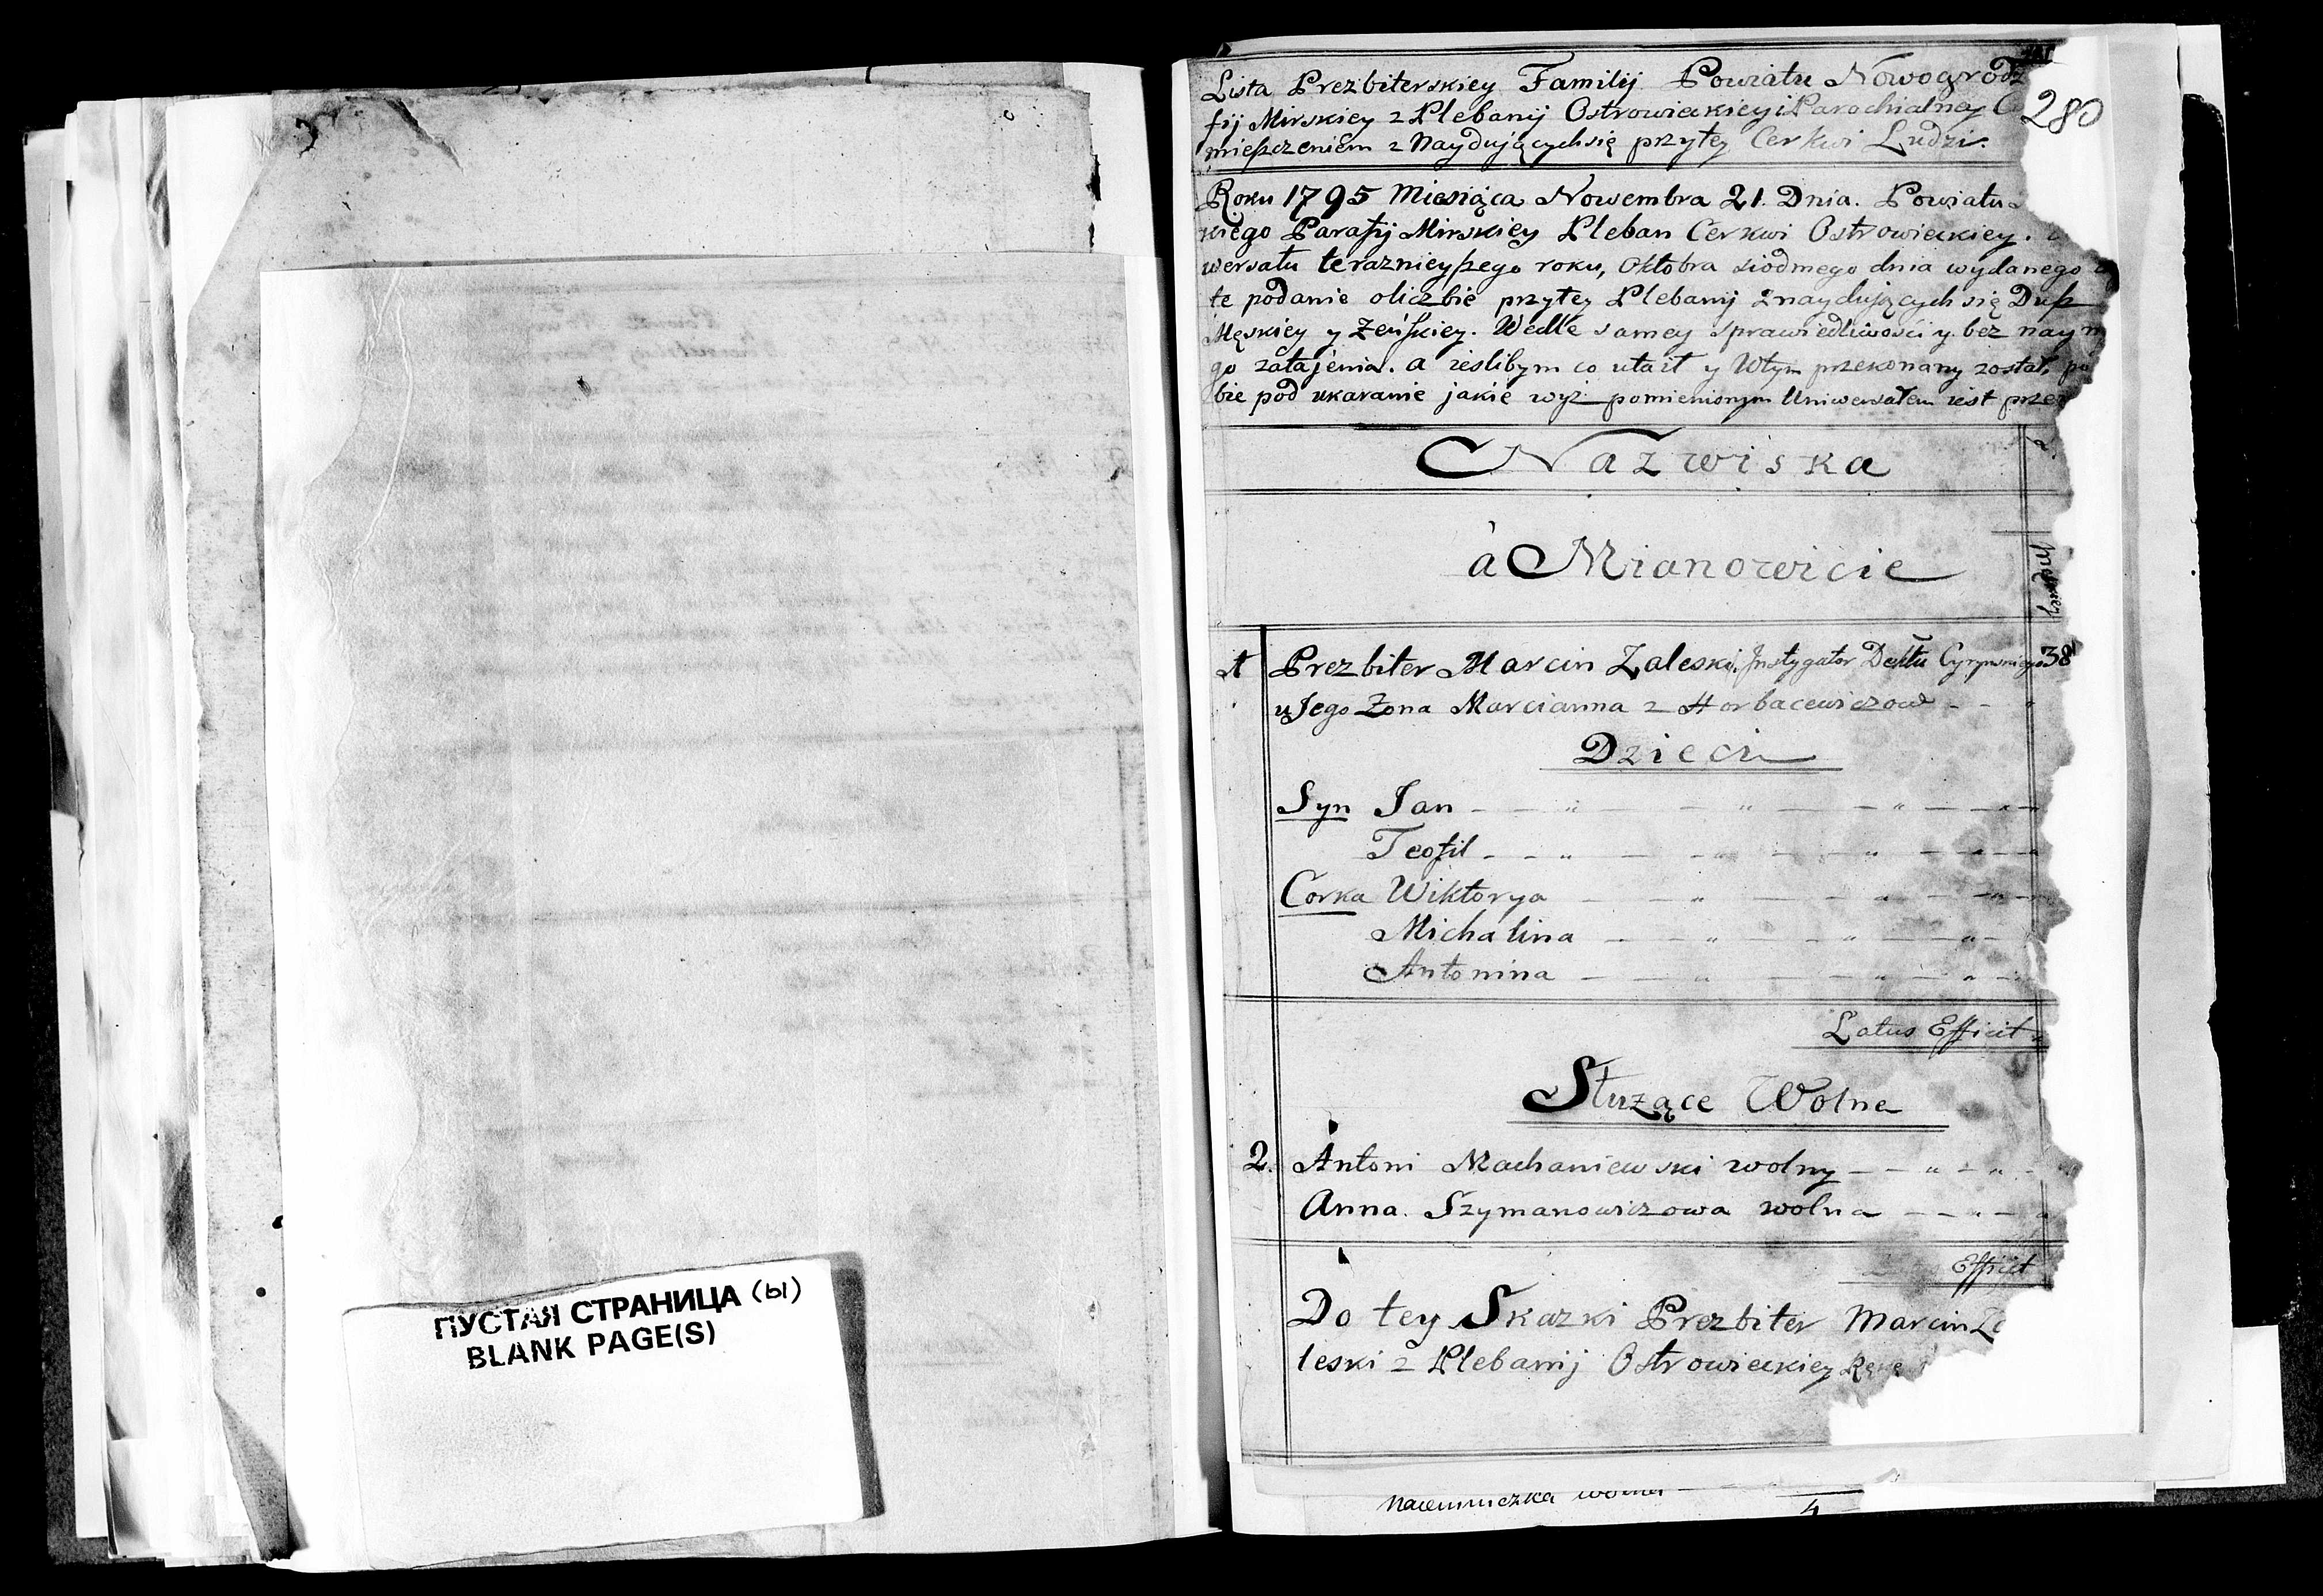 ПУСТАЯ СТРАНИЦА (ы)
BLANK PAGE(S)
280
Lista Prezbiterskiey Familij Powiatu Nowogrodz
fij Mirskiey z Plebanij Ostrowieckiey i Parochialney C
mieszczeniem znaydujących się przytey Cerkwi Ludzi.
Roku 1795 Miesiąca Nowembra 21. Dnia. Powiatu
kiego Parafij Mirskiey Pleban Cerkwi Ostrowieckiey.
wersału teraznieyszego roku, Oktobra siodmego dnia wydanego
te podanie oliczbie przytey Plebanij znaydujących się Dusz
Męskiey y Zeńskiey. Wedle samey sprawiedliwości y bez naym
go zatajenia. a ieslibym co utaił y wtym przekonany został, po
bie pod ukaranie jakie wyż pomienionym Uniwersałem iest prze
Nazwiska
à Mianowicie
Męskiey
1 Prezbiter Marcin Zaleski, Instygator Dektu Cyrynskiego 38
y Jego Zona Marcianna z Horbacewiczow
Dzieci
Syn Jan
Teofil
Corka Wiktorya
Michalina
Antonina
Latus Efficit
Służące Wolne
2. Antoni Machaniewski wolny
Anna Szymanowiczowa wolna
Efficit
Do tey Skazki Prezbiter Marcin Za
leski z Plebanij Ostrowieckiey Rękę
4